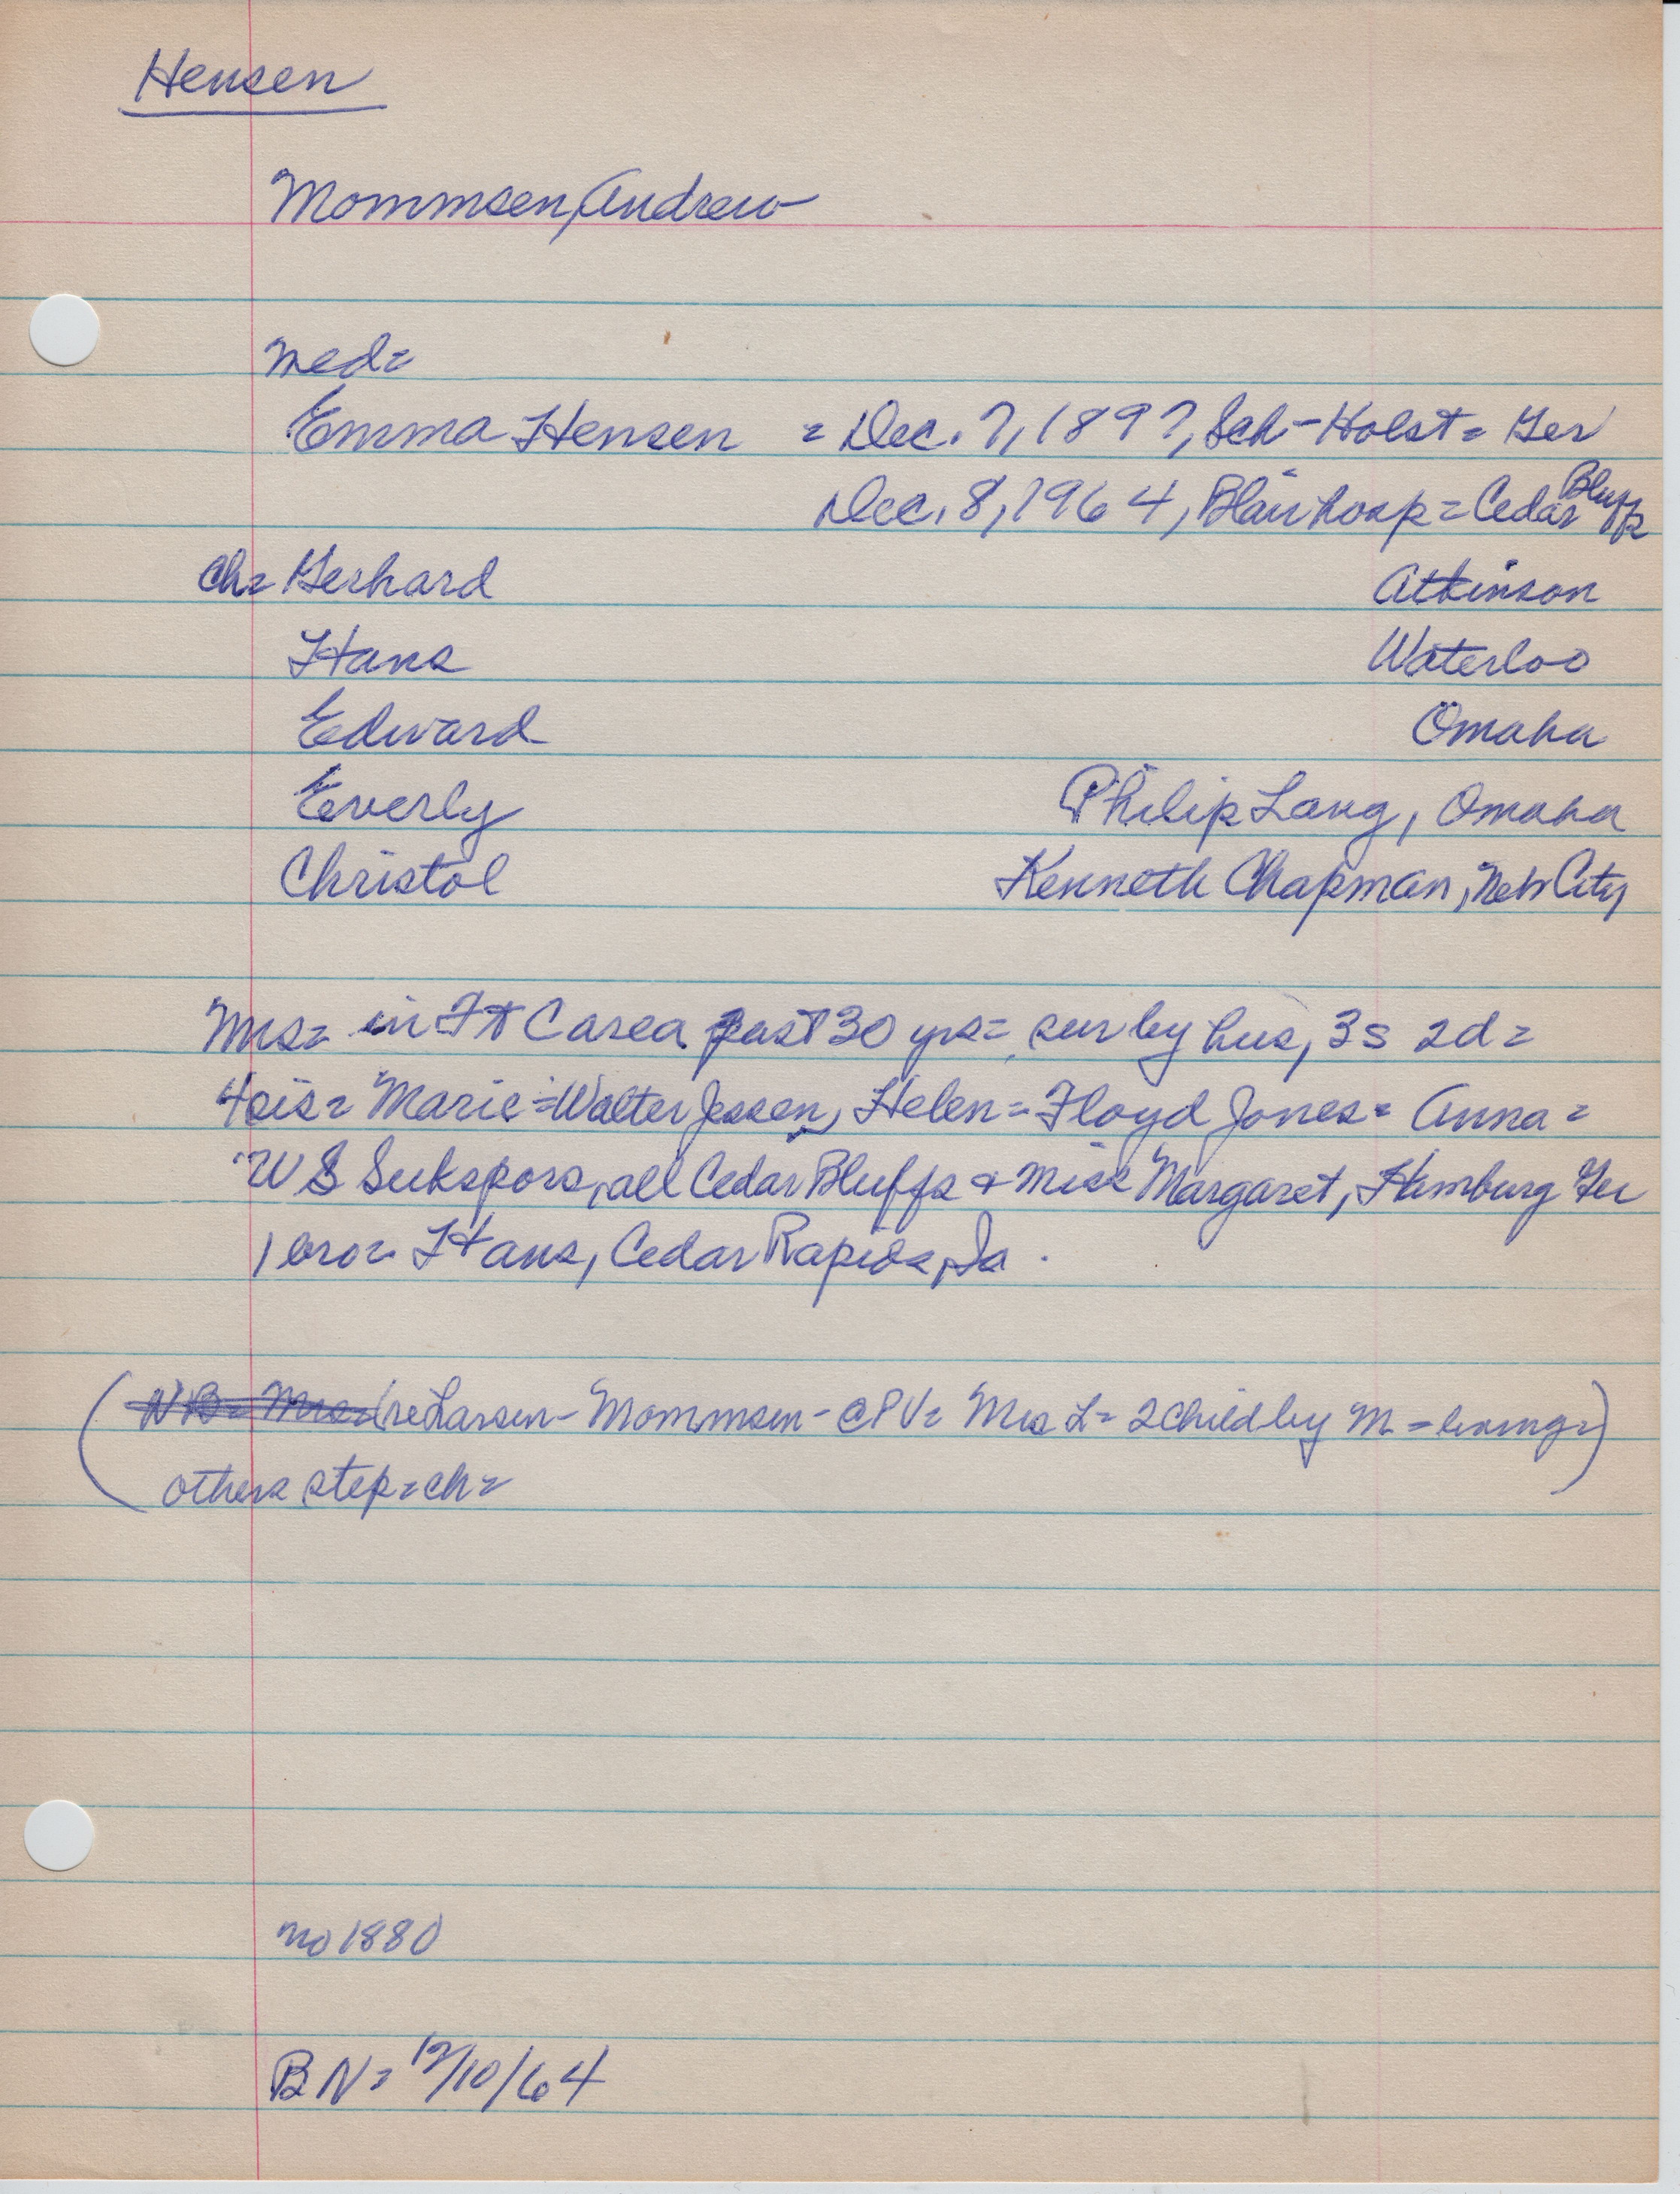 Hensen
Mommsen, Andrew
med=
Emma Hensen = Dec. 7, 1897, Sch-Holst= Ger
Dec. 8, 1964, Blair hosp= Cedar Bluffs
Ch= Gerhard Atkinson
Hans Waterloo
Edward Omaha
Everly Philip Lang, Omaha
Christol Kenneth Chapman, Neb City
Mrs= in Ft C area past 30 yrs= sur by hus, 3s 2d=
4sis= Marie=Walter Jessen, Helen=Floyd Jones= Anna=
W S Sukspors, all Cedar Bluffs & Miss Margaret, Hamburg Ger
1 bro= Hans, Cedar Rapids, Ia.
(NB= Mrs= (re Larsen-Mommsen- @PV= Mrs L= 2 child by M =
others step=ch=
no 1880
BN= 12/10/64